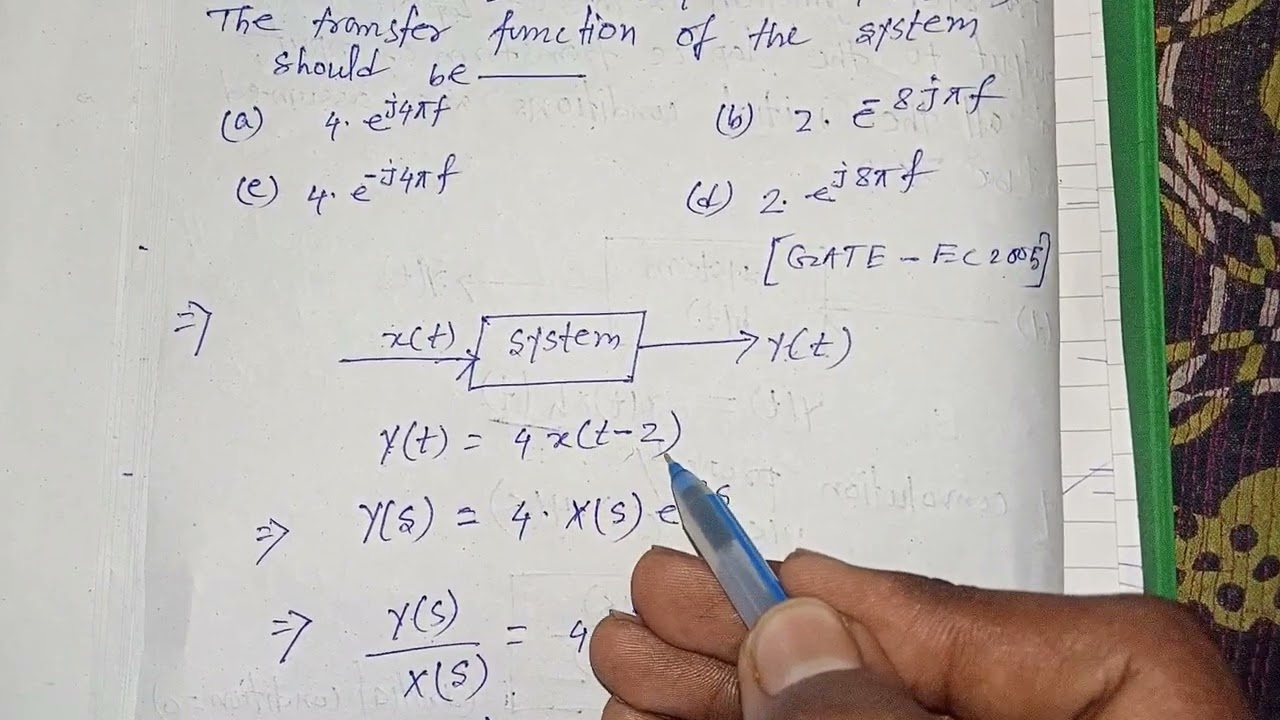 The transfer function of the system
should be ———
(a) 4. e^{j4πf} (b) 2. e^{-8jπf}
(c) 4. e^{-j4πf} (d) 2. e^{j8πf}
[GATE - EC 2005]
⇒
x(t) system Y(t)
Y(t) = 4 x(t-2)
⇒ Y(s) = 4 · X(s) e s
⇒ Y(s)/X(s) = 4